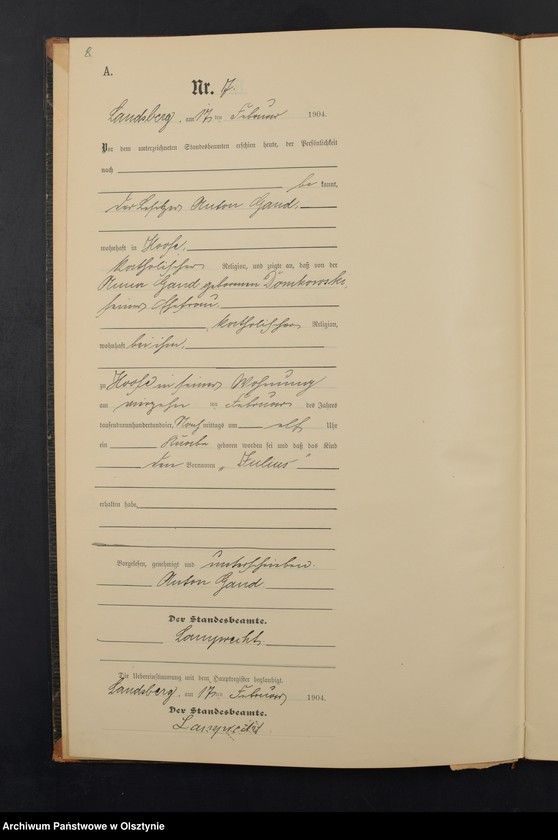 8
A.
Nr. 7.
Landsberg, am 17ten Februar 1904.
Vor dem unterzeichneten Standesbeamten erschien heute, der Persönlichkeit
nach
be kannt,
der Besitzer Anton Gand,
wohnhaft in Hoofe,
katholischer Religion, und zeigte an, daß von der
Anna Gand geborenen Domkowski,
seiner Ehefrau,
katholischer Religion,
wohnhaft bei ihm,
zu Hoofe in seiner Wohnung
am vierzehn ten Februar des Jahres
tausendneunhundertundvier, Nach mittags um elf Uhr
ein Knabe geboren worden sei und daß das Kind
den Vornamen „Julius“
erhalten habe
Vorgelesen, genehmigt und unterschrieben.
Anton Gand
Der Standesbeamte.
Lamprecht
Die Uebereinstimmung mit dem Hauptregister beglaubigt.
Landsberg, am 17ten Februar 1904.
Der Standesbeamte.
Lamprecht
Archiwum Państwowe w Olsztynie